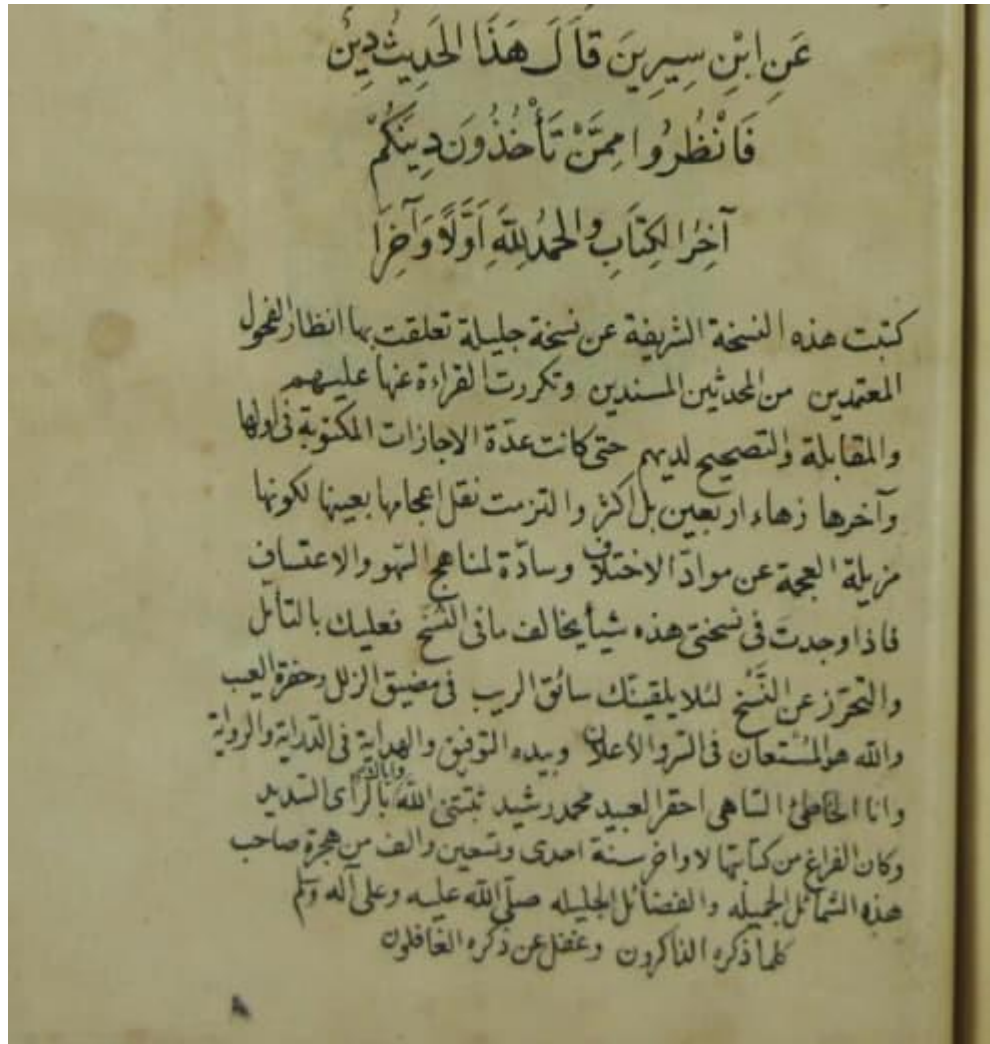 عَنِ ابْنِ سِيرِينَ قَالَ هَذَا الْحَدِيثُ دِينٌ
فَانْظُرُوا مِمَّنْ تَأْخُذُونَ دِينَكُمْ
آخِرُ الكِتَابِ وَالْحَمْدُ لِلّٰهِ اَوَّلًا وَآخِرًا
كتبت هذه النسخة الشريفة عن نسخة جليلة تعلقت بها انظار الفحول
المعتمدين من المحدثين المسندين وتكررت القراءة عنها عليهم
والمقابلة والتصحيح لديهم حتى كانت عدّة الاجازات المكتوبة فى اولها
وآخرها زهاء اربعين بل اكثر والتزمت نقل اعجامها بعينها لكونها
مزيلة العجمة عن موادّ الاختلاف وسادّة لمناهج السّهو والاعتساف
فاذا وجدت فى نسختى هذه شيأ يخالف ما فى النُّسَخ فعليك بالتأمّل
والتحرّز عن النَّسْخ لئلا يلقينّك سائق الريب فى مضيق الزلل وحفرة العيب
والله هو المُسْتعان فى السّر والأعلان وبيده التوفيق والهداية فى الدّراية والرواية
وانا الخاطئ السّاهى احقر العبيد محمد رشيد ثبّتنى اللّٰه واياكم بالرّأى السّديد
وكان الفراغ من كتابتها لاواخر سنة احدى وتسعين والف من هجرة صاحب
هذه الشمائل الجميله والفضائل الجليله صلّى الله عليه وعلى آله وسلّم
كلما ذكره الذاكرون وغفل عن ذكره الغافلون